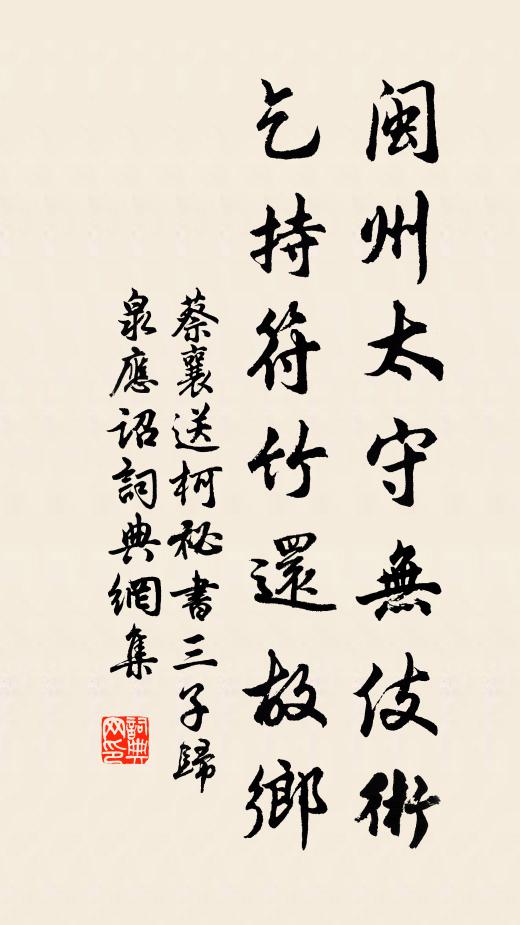 闽州太守無伎術
乞持符竹還故鄉
蔡襄送柯秘書三子歸
泉應詔詞典網集
詞典网印